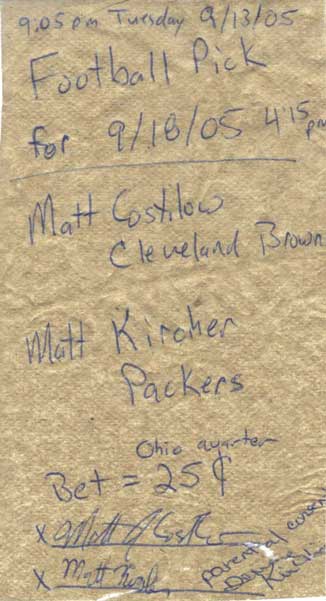 9:05 pm Tuesday 9/13/05
Football Pick
for 9/18/05 4:15 pm
Matt Costilow
Cleveland Brown
Matt Kircher
Packers
Ohio quarter
Bet = 25¢
x Matt J Cost
x Matt Kirch
parental consen